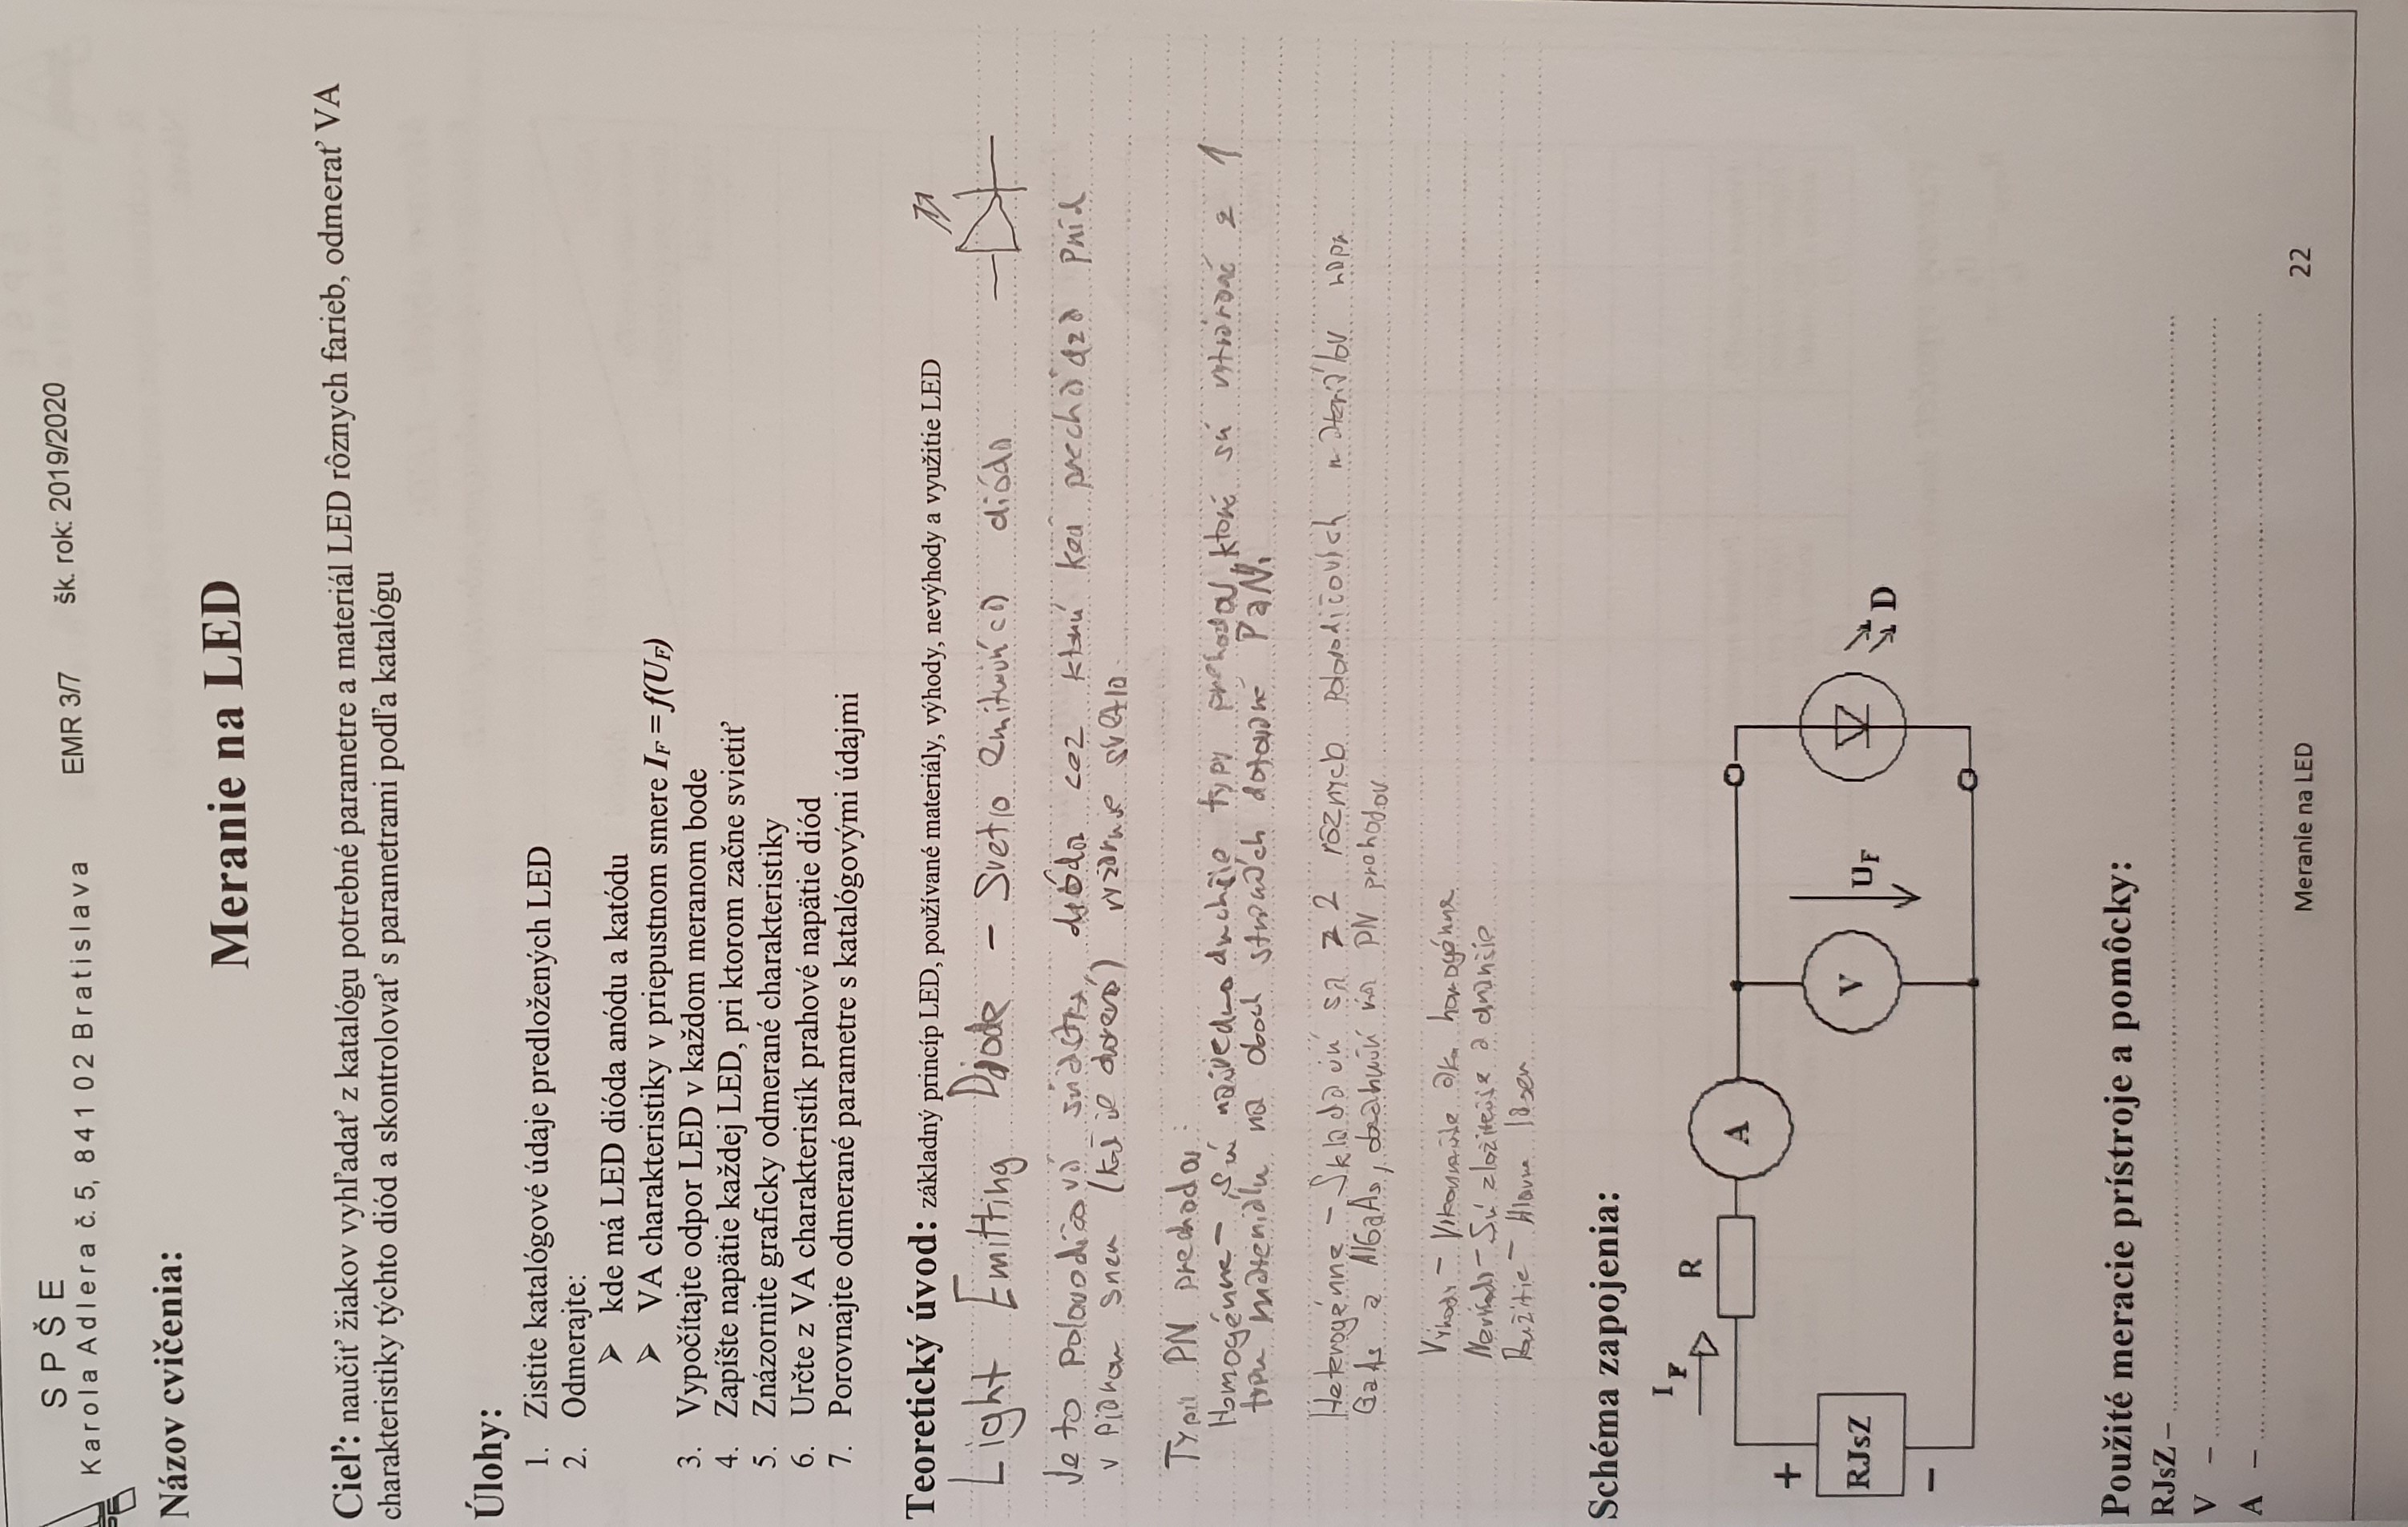 SPŠE
Karola Adlera č. 5, 841 02 Bratislava
EMR 3/7
šk. rok: 2019/2020
Názov cvičenia:
Meranie na LED
Cieľ: naučiť žiakov vyhľadať z katalógu potrebné parametre a materiál LED rôznych farieb, odmerať VA
charakteristiky týchto diód a skontrolovať s parametrami podľa katalógu
Úlohy:
1. Zistite katalógové údaje predložených LED
2. Odmerajte:
➢ kde má LED dióda anódu a katódu
➢ VA charakteristiky v priepustnom smere I_F = f(U_F)
3. Vypočítajte odpor LED v každom meranom bode
4. Zapíšte napätie každej LED, pri ktorom začne svietiť
5. Znázornite graficky odmerané charakteristiky
6. Určte z VA charakteristík prahové napätie diód
7. Porovnajte odmerané parametre s katalógovými údajmi
Teoretický úvod: základný princíp LED, používané materiály, výhody, nevýhody a využitie LED
Light Emitting Diode - Svetlo emitujúca dióda
Je to polovodičová súčiastka, dióda cez ktorú keď prechádza prúd
v smeru vyžaruje svetlo
Typy PN prechodov:
Homogénne - sú najjednoduchšie typy prehodov, ktoré sú vytvárané z 1
typu materiálu na oboch stranách dotované P a N.
Heterogénne - Skladajú sa z 2 rôznych polovodičových materiálov napr
GaAs a AlGaAs, obsahujú via PN prehodov
Výhody - Výkonnejšie ako homogénne
Nevýhody - Sú zložitejšie a drahšie
Použitie - Hlavne laser
Schéma zapojenia:
I_F
R
A
+
RJsZ
V
U_F
D
−
Použité meracie prístroje a pomôcky:
RJsZ –
V –
A –
Meranie na LED
22